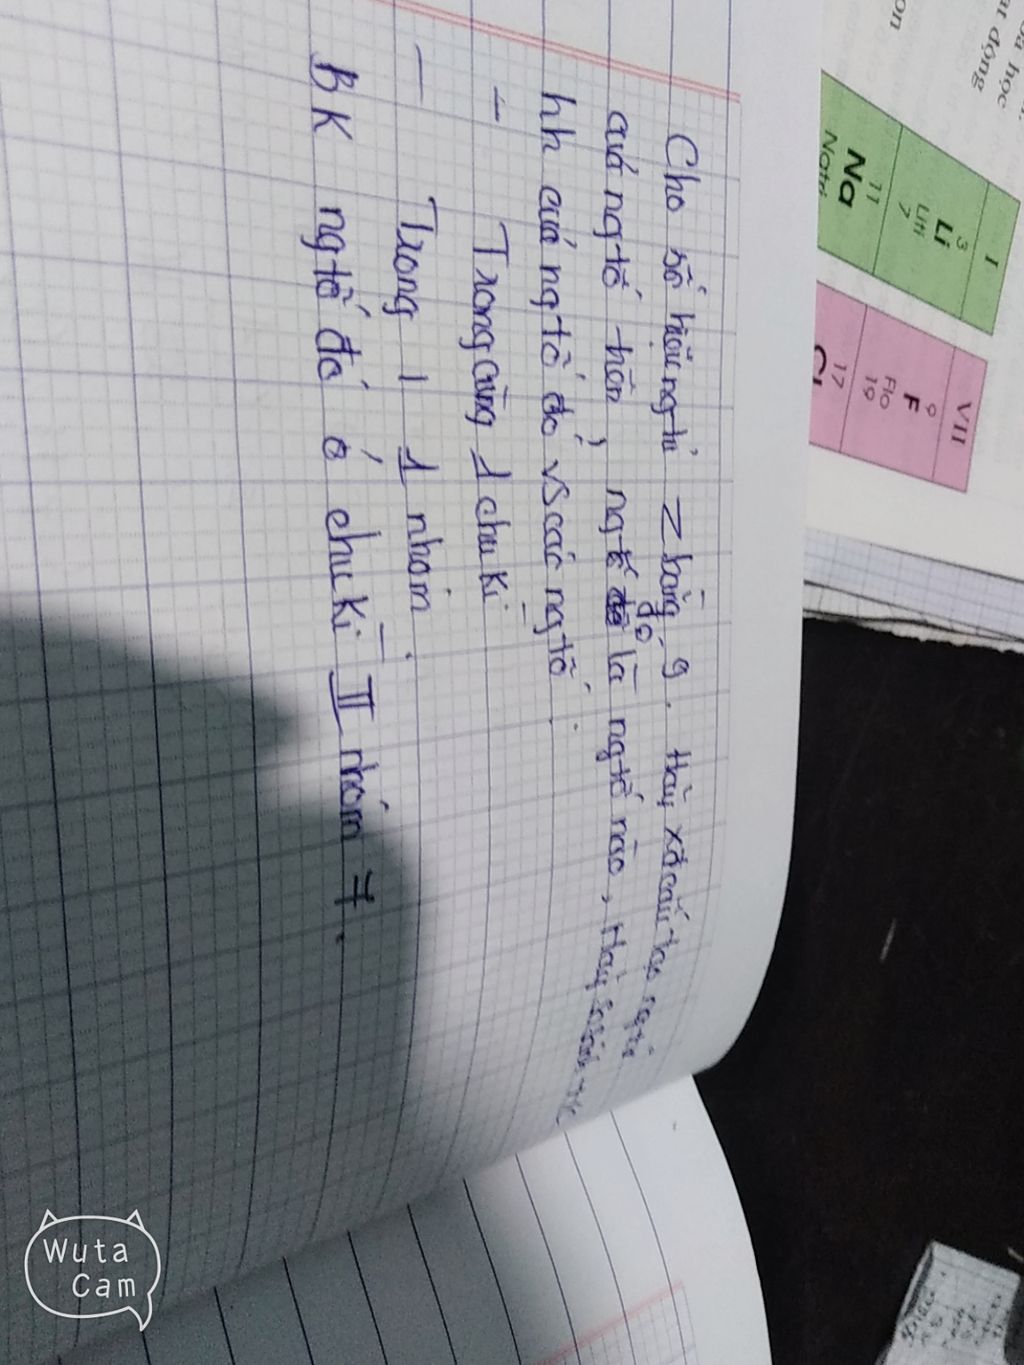 Cho số hiệu ngtử Z bằng 9. Hãy xđ cấu tạo ngtử
quá ngtố trên, ngtố đó là ngtố nào, Hãy so sánh
hh quá ngtố đó vs các ngtố.
- Trong cùng 1 chu kì
- Trong 1 1 nhóm.
BK ngtố đó ở chu kì II nhóm 7.
hoá học
ạt động
I
3
Li
Liti
7
11
Na
Natri
VII
9
F
Flo
19
17
Cl
Wuta
Cam